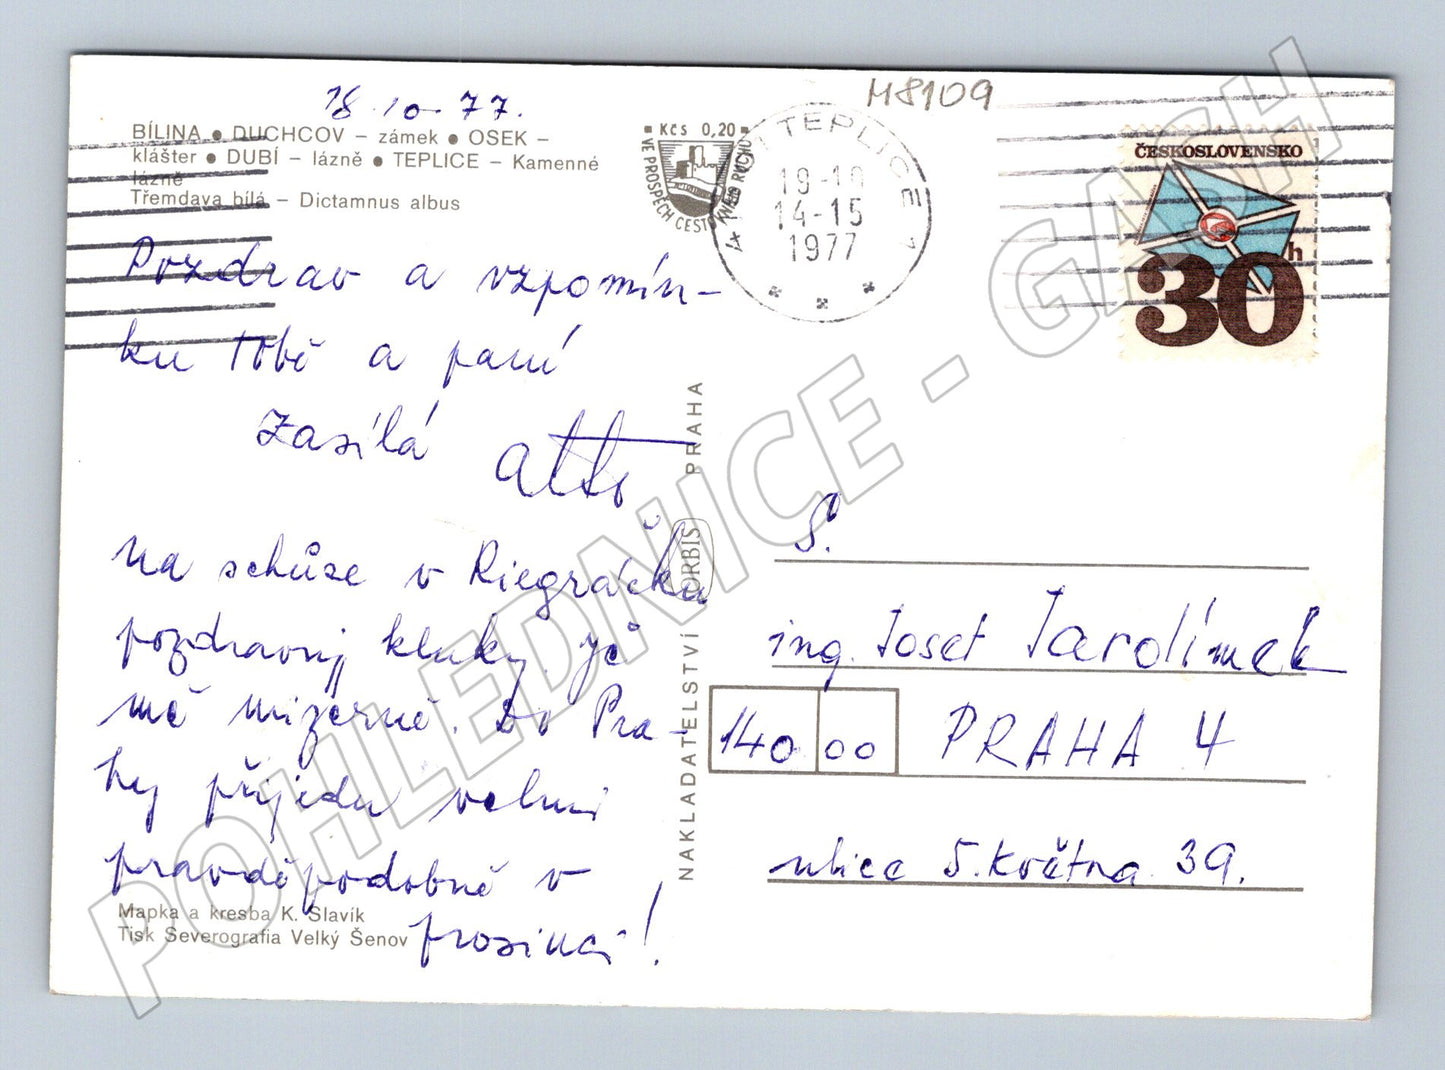 18.10.77.
M8109
BÍLINA ● DUCHCOV – zámek ● OSEK –
klášter ● DUBÍ – lázně ● TEPLICE – Kamenné
lázně
Třemdava bílá – Dictamnus albus
Kčs 0,20
VE PROSPĚCH CEST
RUCHU
TEPLICE 1
19-10
14-15
1977
ČESKOSLOVENSKO
30h
Pozdrav a vzpomín-
ku tobě a paní
zasílá
Otto
Na schůze v Riegráčku
pozdravuj kluky. Je
mě mizerně. Do Pra-
hy přijedu velmi
pravděpodobně v
prosinci!
Mapka a kresba K. Slavík
Tisk Severografia Velký Šenov
NAKLADATELSTVÍ ORBIS PRAHA
P.
ing. Josef Jarolímek
140 00 PRAHA 4
ulice 5. Května 39.
POHLEDNICE - GASH